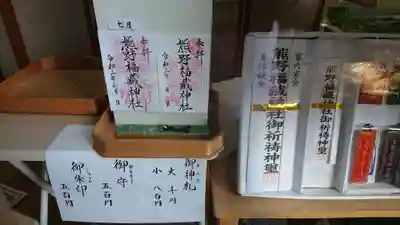 七月
奉拝
熊野福藏神社
令和二年七月 日
奉拝
熊野福藏神社
令和二年 月 日
御神札
大 千円
小 八百円
御守
五百円
御朱印
五百円
家内安全
熊野福藏神社御祈祷神璽
身体健全
熊野福藏神社御祈祷神璽